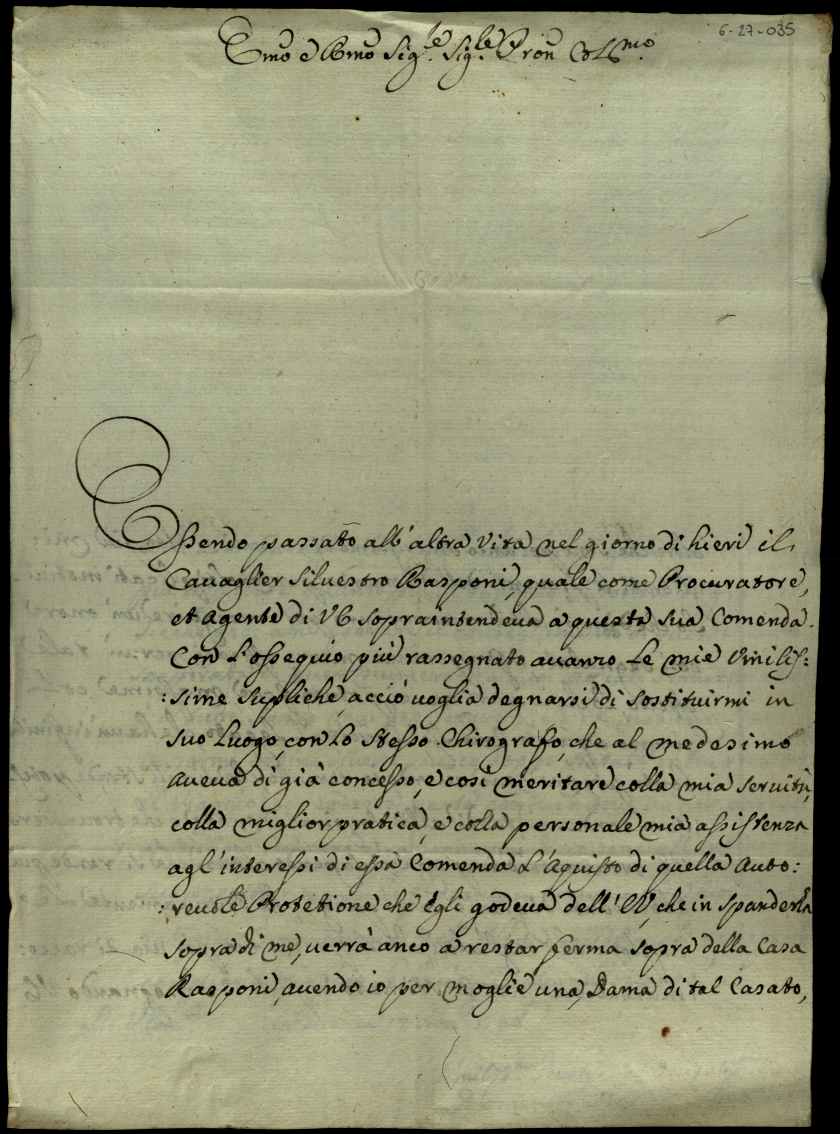 6-27-035
Emo e Rmo Sig.re Sig.re Pron Colmo
Essendo passato all'altra vita nel giorno di hieri il
Cauaglier Siluestro Rasponi, quale come Procuratore,
et Agente di V E sopraintendeua a questa sua Comenda.
Con l'ossequio più rassegnato auanzo le mie vmilis:
:sime supliche, acciò uoglia degnarsi di sostituirmi in
suo luogo, con lo stesso Chirografo, che al medesimo
aueua di già concesso, e così meritare colla mia seruitù,
colla miglior pratica, e colla personale mia assistenza
agl'interessi di essa Comenda l'aquisto di quella auto:
:reuole Protetione che egli godeua dell'EV, che in spanderla
sopra di me, uerrà anco a restar ferma sopra della Casa
Rasponi, auendo io per moglie una Dama di tal Casato,